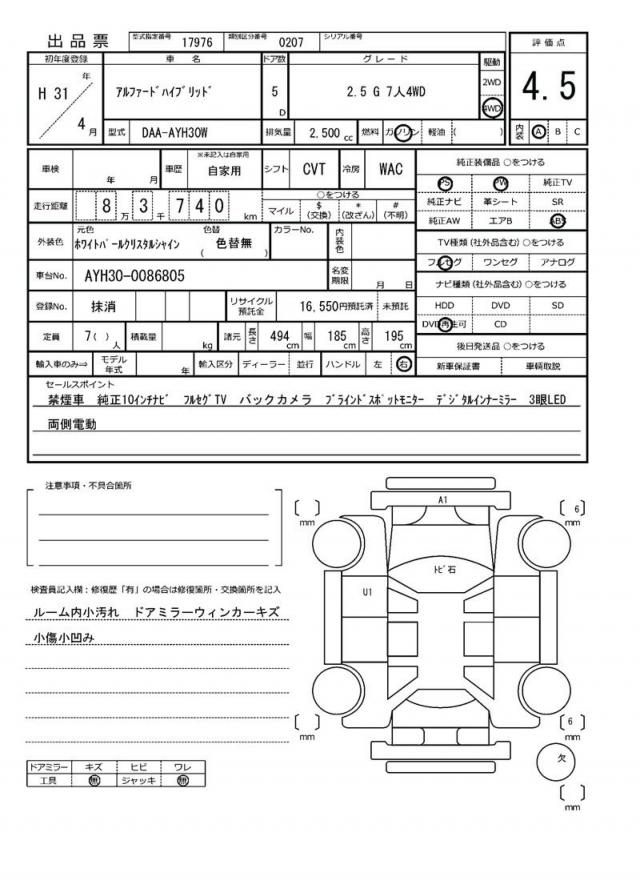 出品票 型式指定番号 17976 類別区分番号 0207 シリアル番号
初年度登録 車名 ドア数 グレード 駆動 評価点
H 31 年 4 月 アルファードハイブリッド 5 D 2.5 G 7人4WD 2WD 4WD 4.5
型式 DAA-AYH30W 排気量 2,500 cc 燃料 ガソリン 軽油 ( ) 内装 A B C
車検 年 月 車歴 ※未記入は自家用 自家用 シフト CVT 冷房 WAC 純正装備品 ○をつける
PS PW 純正TV
走行距離 8 万 3 千 7 4 0 km ○をつける 純正ナビ 革シート SR
マイル $ (交換) * (改ざん) # (不明) 純正AW エアB ABS
外装色 元色 ホワイトパールクリスタルシャイン 色替 ( 色替無 ) カラーNo. 内装色 TV種類(社外品含む)○をつける
フルセグ ワンセグ アナログ
車台No. AYH30-0086805 名変期限 月 日 ナビ種類(社外品含む)○をつける
登録No. 抹消 リサイクル預託金 16,550円預託済 未預託 HDD DVD SD
DVD再生可 CD
定員 7( ) 人 積載量 kg 諸元 長さ 494 cm 幅 185 cm 高さ 195 cm 後日発送品 ○をつける
輸入車のみ⇒ モデル年式 年 輸入区分 ディーラー 並行 ハンドル 左 右 新車保証書 車輌取説
セールスポイント
禁煙車 純正10インチナビ フルセグTV バックカメラ ブラインドスポットモニター デジタルインナーミラー 3眼LED
両側電動
注意事項・不具合箇所
検査員記入欄:修復歴「有」の場合は修復箇所・交換箇所を記入
ルーム内小汚れ ドアミラーウィンカーキズ
小傷小凹み
ドアミラー キズ ヒビ ワレ
工具 無 ジャッキ 無
A1
[ ] mm
[ 6 ] mm
トビ石
U1
[ ] mm
[ 6 ] mm
欠
[ ] mm